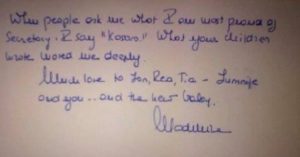 When people ask me what I am most proud of
Secretary. I say "Kosovo." What your children
wrote moved me deeply.
Much love to Jon, Rea, Tia -
and you.. and the new baby.
Madeleine